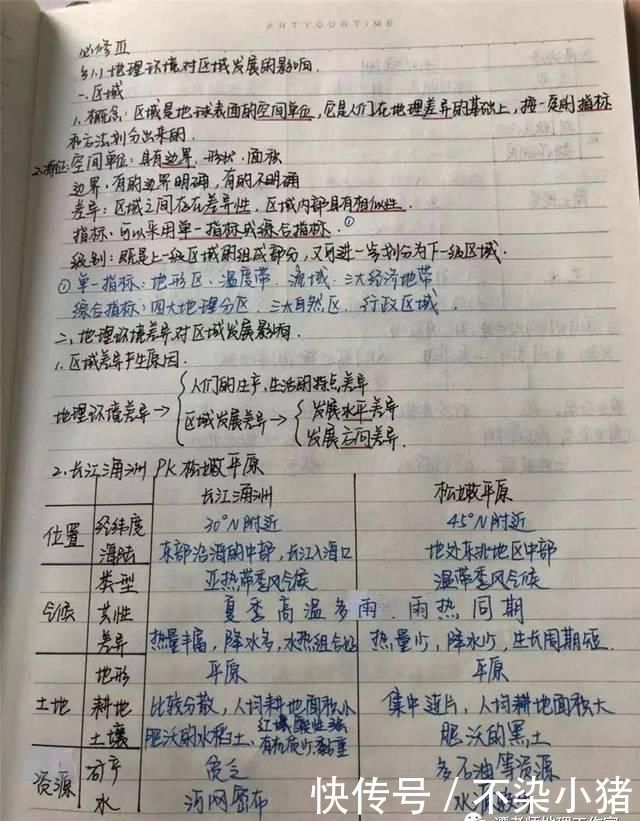 ARTYOURTIME
必修Ⅲ
§1.1 地理环境对区域发展的影响.
一.区域
1.概念:区域是地球表面的空间单位,它是人们在地理差异的基础上,按一定的指标
和方法划分出来的.
2.特征:空间单位:具有边界.形状.面积
边界:有的边界明确,有的不明确
差异:区域之间存在差异性,区域内部具有相似性.
指标:可以采用单一指标或综合指标.①
级别:既是上一级区域的组成部分,又可进一步划分为下一级区域.
①单一指标:地形区、温度带、流域、三大经济地带
综合指标:四大地理分区、三大自然区、行政区域.
二、地理环境差异对区域发展影响.
1.区域差异产生原因.
人们的生产、生活的特点差异
地理环境差异→ 区域发展差异→ 发展水平差异
发展方向差异.
2.长江三角洲 PK 松嫩平原
长江三角洲 松嫩平原
位置 经纬度 30°N附近 45°N附近
海陆 东部沿海的中部,长江入海口 地处东北地区中部
气候 类型 亚热带季风气候 温带季风气候
共性 夏季高温多雨.雨热同期
差异 热量丰富,降水多,水热组合好 热量少,降水少,生长周期短.
土地 地形 平原 平原
耕地 比较分散,人均耕地面积小 集中连片,人均耕地面积大
土壤 肥沃的水稻土、红壤酸性强 有机质少黏重 肥沃的黑土
资源 矿产 贫乏 多石油等资源
水 河网密布 水
快传号/不染小猪